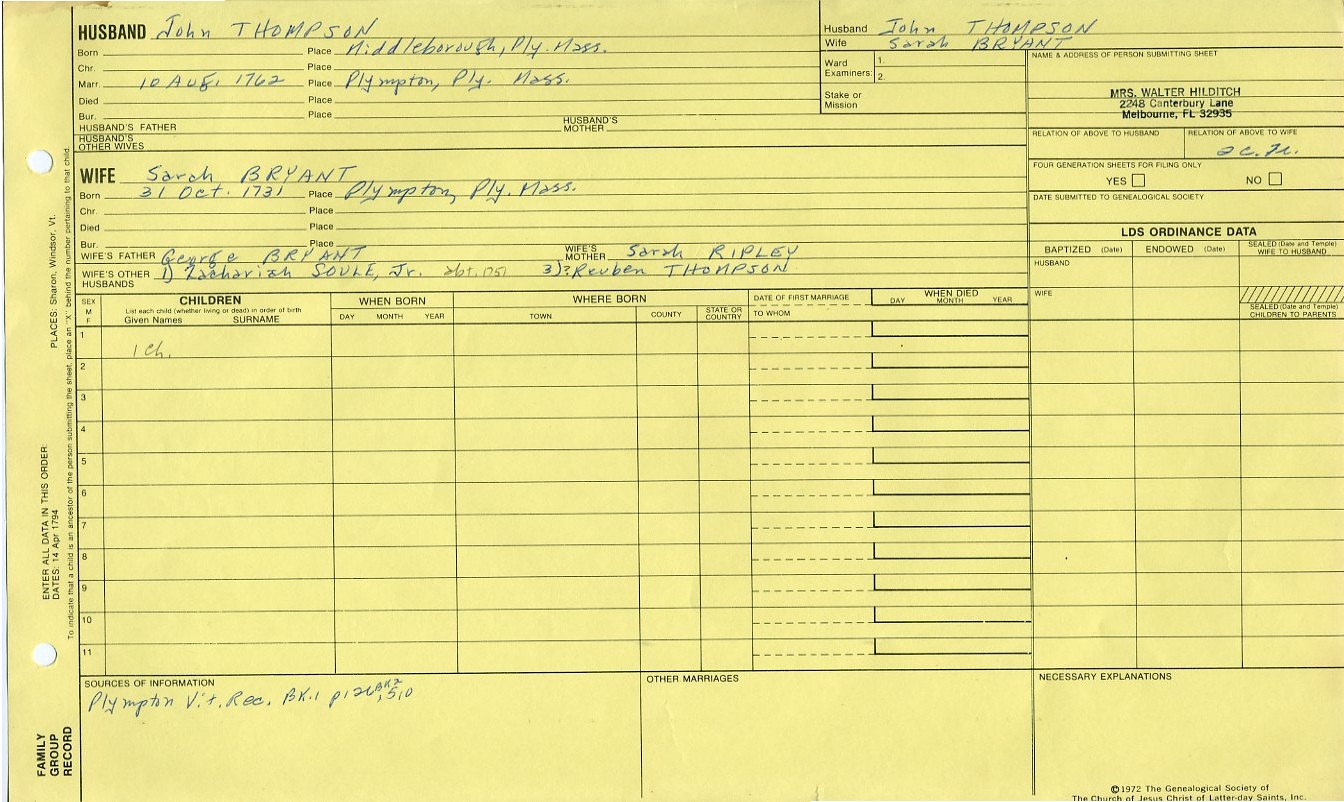 HUSBAND John THOMPSON
Born Place Middleborough, Ply. Mass.
Chr. Place
Marr. 10 Aug. 1762 Place Plympton, Ply. Mass.
Died Place
Bur. Place
HUSBAND'S FATHER HUSBAND'S MOTHER
HUSBAND'S OTHER WIVES
Husband John THOMPSON
Wife Sarah BRYANT
Ward Examiners: 1.
2.
Stake or Mission
NAME & ADDRESS OF PERSON SUBMITTING SHEET
MRS. WALTER HILDITCH
2248 Canterbury Lane
Melbourne, FL 32935
RELATION OF ABOVE TO HUSBAND RELATION OF ABOVE TO WIFE
FOUR GENERATION SHEETS FOR FILING ONLY
YES NO
DATE SUBMITTED TO GENEALOGICAL SOCIETY
WIFE Sarah BRYANT
Born 31 Oct. 1731 Place Plympton, Ply. Mass.
Chr. Place
Died Place
Bur. Place
WIFE'S FATHER George BRYANT WIFE'S MOTHER Sarah RIPLEY
WIFE'S OTHER HUSBANDS 1) Zachariah SOULE, Jr. abt. 1751 3)? Reuben THOMPSON
LDS ORDINANCE DATA
BAPTIZED (Date) ENDOWED (Date) SEALED (Date and Temple) WIFE TO HUSBAND
HUSBAND
WIFE
SEALED (Date and Temple) CHILDREN TO PARENTS
SEX M F
CHILDREN
List each child (whether living or dead) in order of birth
Given Names SURNAME
WHEN BORN
DAY MONTH YEAR
WHERE BORN
TOWN COUNTY STATE OR COUNTRY
DATE OF FIRST MARRIAGE
TO WHOM
WHEN DIED
DAY MONTH YEAR
1
1 ch.
2
3
4
5
6
7
8
9
10
11
SOURCES OF INFORMATION
Plympton Vit. Rec. BK.1 BK2 510
OTHER MARRIAGES
NECESSARY EXPLANATIONS
PLACES: Sharon, Windsor, Vt.
To indicate that a child is an ancestor of the person submitting the sheet, place an "X" behind the number pertaining to that child.
ENTER ALL DATA IN THIS ORDER:
DATES: 14 Apr 1794
FAMILY GROUP RECORD
©1972 The Genealogical Society of
The Church of Jesus Christ of Latter-day Saints, Inc.